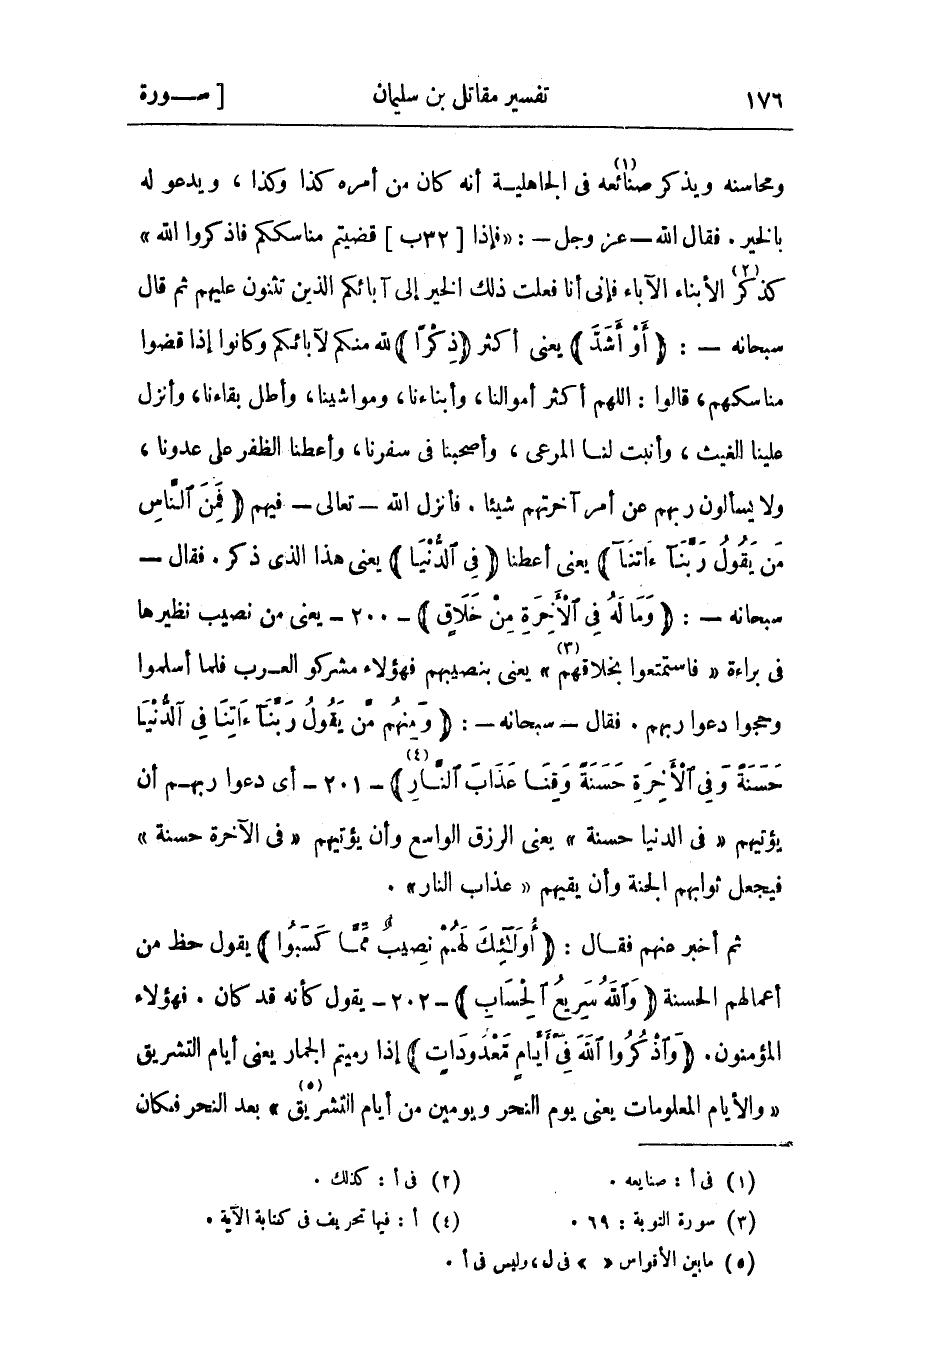 ١٧٦ تفسير مقاتل بن سليمان [ سـورة
ومحاسنه ويذكر صنائعه(١) فى الجاهليـة أنه كان من أمره كذا وكذا ، ويدعو له
بالخير . فقال الله — عز وجل — : «فإذا [ ٣٢ب ] قضيتم مناسككم فاذكروا الله »
كذكر(٢) الأبناء الآباء فإنى أنا فعلت ذلك الخير إلى آبائكم الذين تثنون عليهم ثم قال
سبحانه — : ﴿ أَوْ أَشَدَّ ﴾ يعنى أكثر ﴿ ذِكْرًا ﴾ لله منكم لآبائكم وكانوا إذا قضوا
مناسكهم، قالوا : اللهم أكثر أموالنا ، وأبناءنا، ومواشينا، وأطل بقاءنا، وأنزل
علينا الغيث ، وأنبت لنـا المرعى ، وأصحبنا فى سفرنا، وأعطنا الظفر على عدونا ،
ولا يسألون ربهم عن أمر آخرتهم شيئا . فأنزل الله — تعالى — فيهم ﴿ فَمِنَ ٱلنَّاسِ
مَن يَقُولُ رَبَّنَآ ءَاتِنَا ﴾ يعنى أعطنا ﴿ فِى ٱلدُّنْيَا ﴾ يعنى هذا الذى ذكر . فقال —
سبحانه — : ﴿ وَمَا لَهُ فِى ٱلْأَخِرَةِ مِنْ خَلَاقٍ ﴾ - ٢٠٠ - يعنى من نصيب نظيرها
فى براءة « فاستمتعوا بخلاقهم(٣) » يعنى بنصيبهم فهؤلاء مشركو العـرب فلما أسلموا
وحجوا دعوا ربهم . فقال — سبحانه — : ﴿ وَمِنْهُم مَّن يَقُولُ رَبَّنَآ ءَاتِنَا فِى ٱلدُّنْيَا
حَسَنَةً وَفِى ٱلْأَخِرَةِ حَسَنَةً وَقِنَـا عَذَابَ ٱلنَّـارِ(٤) ﴾ - ٢٠١ - أى دعوا ربهـم أن
يؤتيهم « فى الدنيا حسنة » يعنى الرزق الواسع وأن يؤتيهم « فى الآخرة حسنة »
فيجعل ثوابهم الجنة وأن يقيهم « عذاب النار» .
ثم أخبر عنهم فقـال : ﴿ أُولَـٰٓئِكَ لَهُمْ نَصِيبٌ مِّمَّـا كَسَبُوا ﴾ يقول حظ من
أعمالهم الحسنة ﴿ وَٱللَّهُ سَرِيعُ ٱلْحِسَابِ ﴾ - ٢٠٢ - يقول كأنه قد كان . فهؤلاء
المؤمنون. ﴿ وَٱذْكُرُوا ٱللَّهَ فِىٓ أَيَّامٍ مَّعْدُودَاتٍ ﴾ إذا رميتم الجمار يعنى أيام التشريق
« والأيام المعلومات يعنى يوم النحر ويومين من أيام التشريق(٥) » بعد النحر فكان
(١) فى أ : صنايعه .
(٢) فى أ : كذلك .
(٣) سورة التوبة : ٦٩ .
(٤) أ : فيها تحريف فى كتابة الآية .
(٥) ما بين الأقواس « » فى ل ، وليس فى أ .